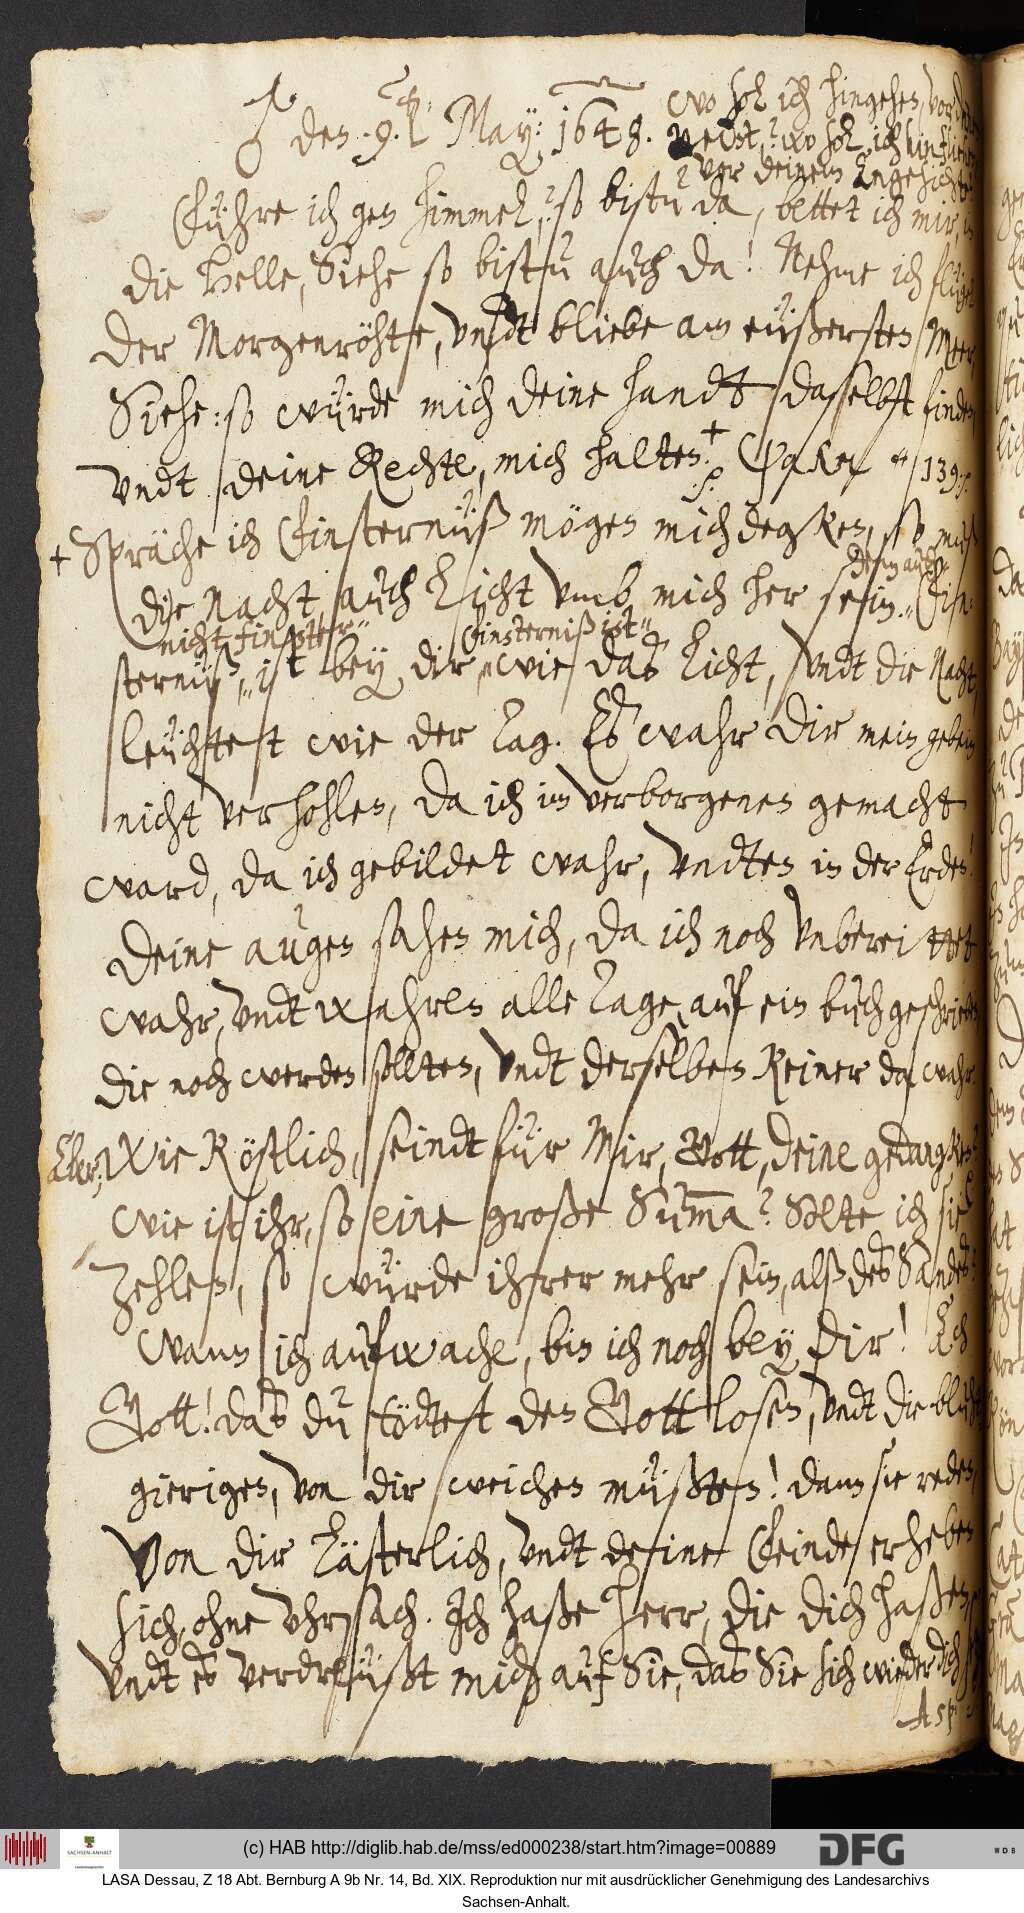 ♂ den .9.ten May: 1648. Wo sol ich hingehen, vor deinem
Geist? wo sol ich hinfliehen
vor deinem Angesicht?
Führe ich gen himmel, so bistu da, bettet ich mir, in
die Helle, Siehe so bistu auch da! Nehme ich flügel
der Morgenröhte, vndt bliebe am eüßersten Meer
Siehe: so würde mich deine handt daselbst finden
vndt deine Rechte, mich halten. + Psalm 139.
+ Spräche ich Finsternüß mögen mich degken, so muß
die Nacht auch Licht vmb mich her sein. denn auch Fin-
nicht finster Finsterniß ist
sternüß, ist bey dir, wie das Licht, vndt die Nacht
leüchtest wie der Tag. Es wahr dir mein gebein
nicht verhohlen, da ich im verborgenen gemacht
ward, da ich gebildet wahr, vndten in der Erden!
Deine augen sahen mich, da ich noch vnbereittet
wahr, vndt wahren alle Tage, auf ein buch geschrieben
die noch werden sollten, vndt derselben keiner da wahr.
Aber, Wie köstlich, seindt für Mir, Gott, deine gedangken?
wie ist ihr, so eine große Summa? Solte ich sie
Zehlen, so würde ihrer mehr sein, alß des Sandes:
wann ich aufwache, bin ich noch bey dir! Ach
Gott! das du tödtest den Gottlosen, vndt die blut¬
gierigen, von dir weichen müßten! dann sie reden,
Von dir Lästerlich, vndt deine Feinde erheben
sich, ohne vhrsach. Ich haße Herr, die dich haßen,
vndt es verdreüßt mich auf Sie, das Sie sich wieder dich
(c) HAB http://diglib.hab.de/mss/ed000238/start.htm?image=00889
SACHSEN-ANHALT
DFG
WDB
LASA Dessau, Z 18 Abt. Bernburg A 9b Nr. 14, Bd. XIX. Reproduktion nur mit ausdrücklicher Genehmigung des Landesarchivs
Sachsen-Anhalt.